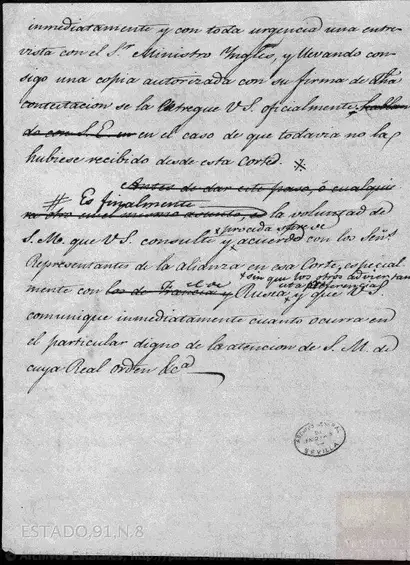 inmediatamente y con toda urgencia una entre-
vista con el Sr Ministro Ingles, y llevando con-
sigo una copia autorizada con su firma de dha
contestacion se la entregue V.S. oficialmente hablan-
do con S.E. en el caso de que todavia no la
hubiese recibido desde esta Corte.
Antes de dar este paso, ó cualquie-
ra otro en el mismo asunto, es
Es finalmente la voluntad de
S.M. que V.S. consulte y proceda de
acuerdo con los Señs
Representantes de la alianza en esa Corte, especial-
mente con los de Francia y el de Rusia sin que los otros adviertan
esta preferencia y que V.S.
comunique inmediatamente cuanto ocurra en
el particular digno de la atencion de S.M. de
cuya Real orden &ca
ARCHIVO GENERAL
DE
INDIAS
SEVILLA
ESTADO,91,N.8